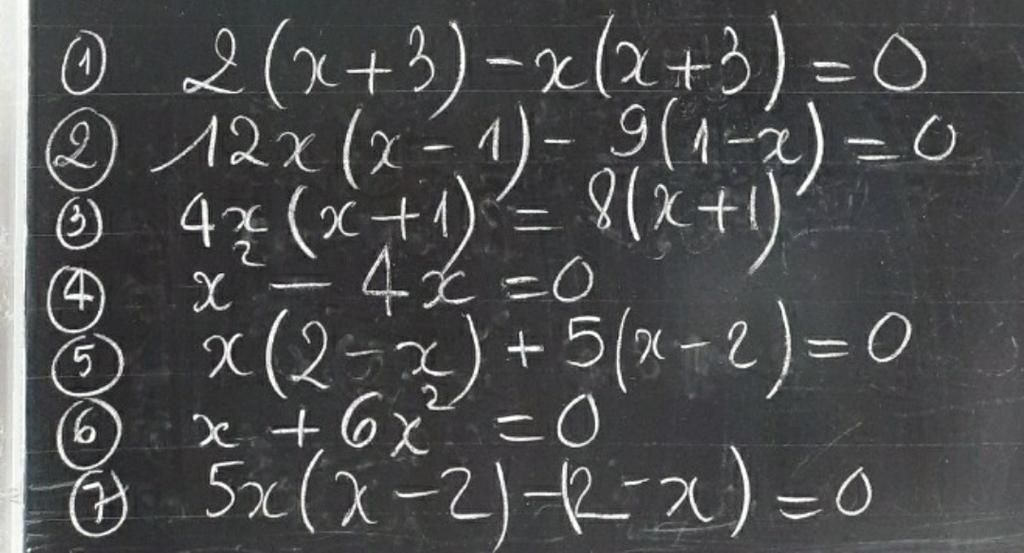 ① 2(x+3)-x(x+3)=0
② 12x(x-1)-9(1-x)=0
③ 4x(x+1)=8(x+1)
④ x²-4x=0
⑤ x(2-x)+5(x-2)=0
⑥ x+6x²=0
⑦ 5x(x-2)-(2-x)=0